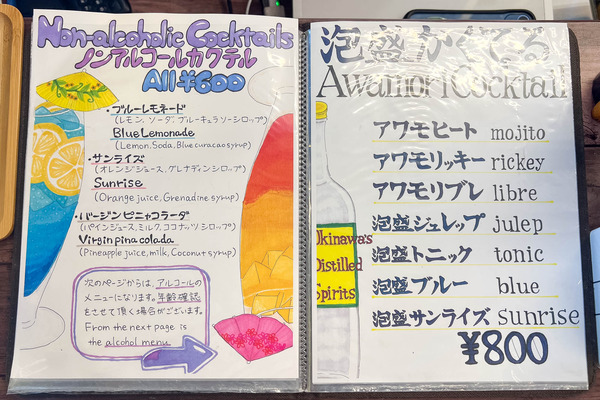 Non-alcoholic Cocktails
ノンアルコールカクテル
All ¥600
・ブルーレモネード
(レモン、ソーダ、ブルーキュラソーシロップ)
Blue Lemonade
(Lemon, Soda, Blue curacao syrup)
・サンライズ
(オレンジジュース、グレナデンシロップ)
Sunrise
(Orange juice, Grenadine syrup)
・バージンピニャコラーダ
(パインジュース、ミルク、ココナッツシロップ)
Virgin pina colada
(Pineapple juice, milk, Coconut syrup)
次のページからは、アルコールの
メニューになります。年齢確認
をさせて頂く場合がございます。
From the next page is
the alcohol menu
泡盛かくてる
Awamori Cocktail
アワモヒート mojito
アワモリッキー rickey
アワモリブレ libre
泡盛ジュレップ julep
泡盛トニック tonic
泡盛ブルー blue
泡盛サンライズ sunrise
¥800
Okinawa's
Distilled
Spirits